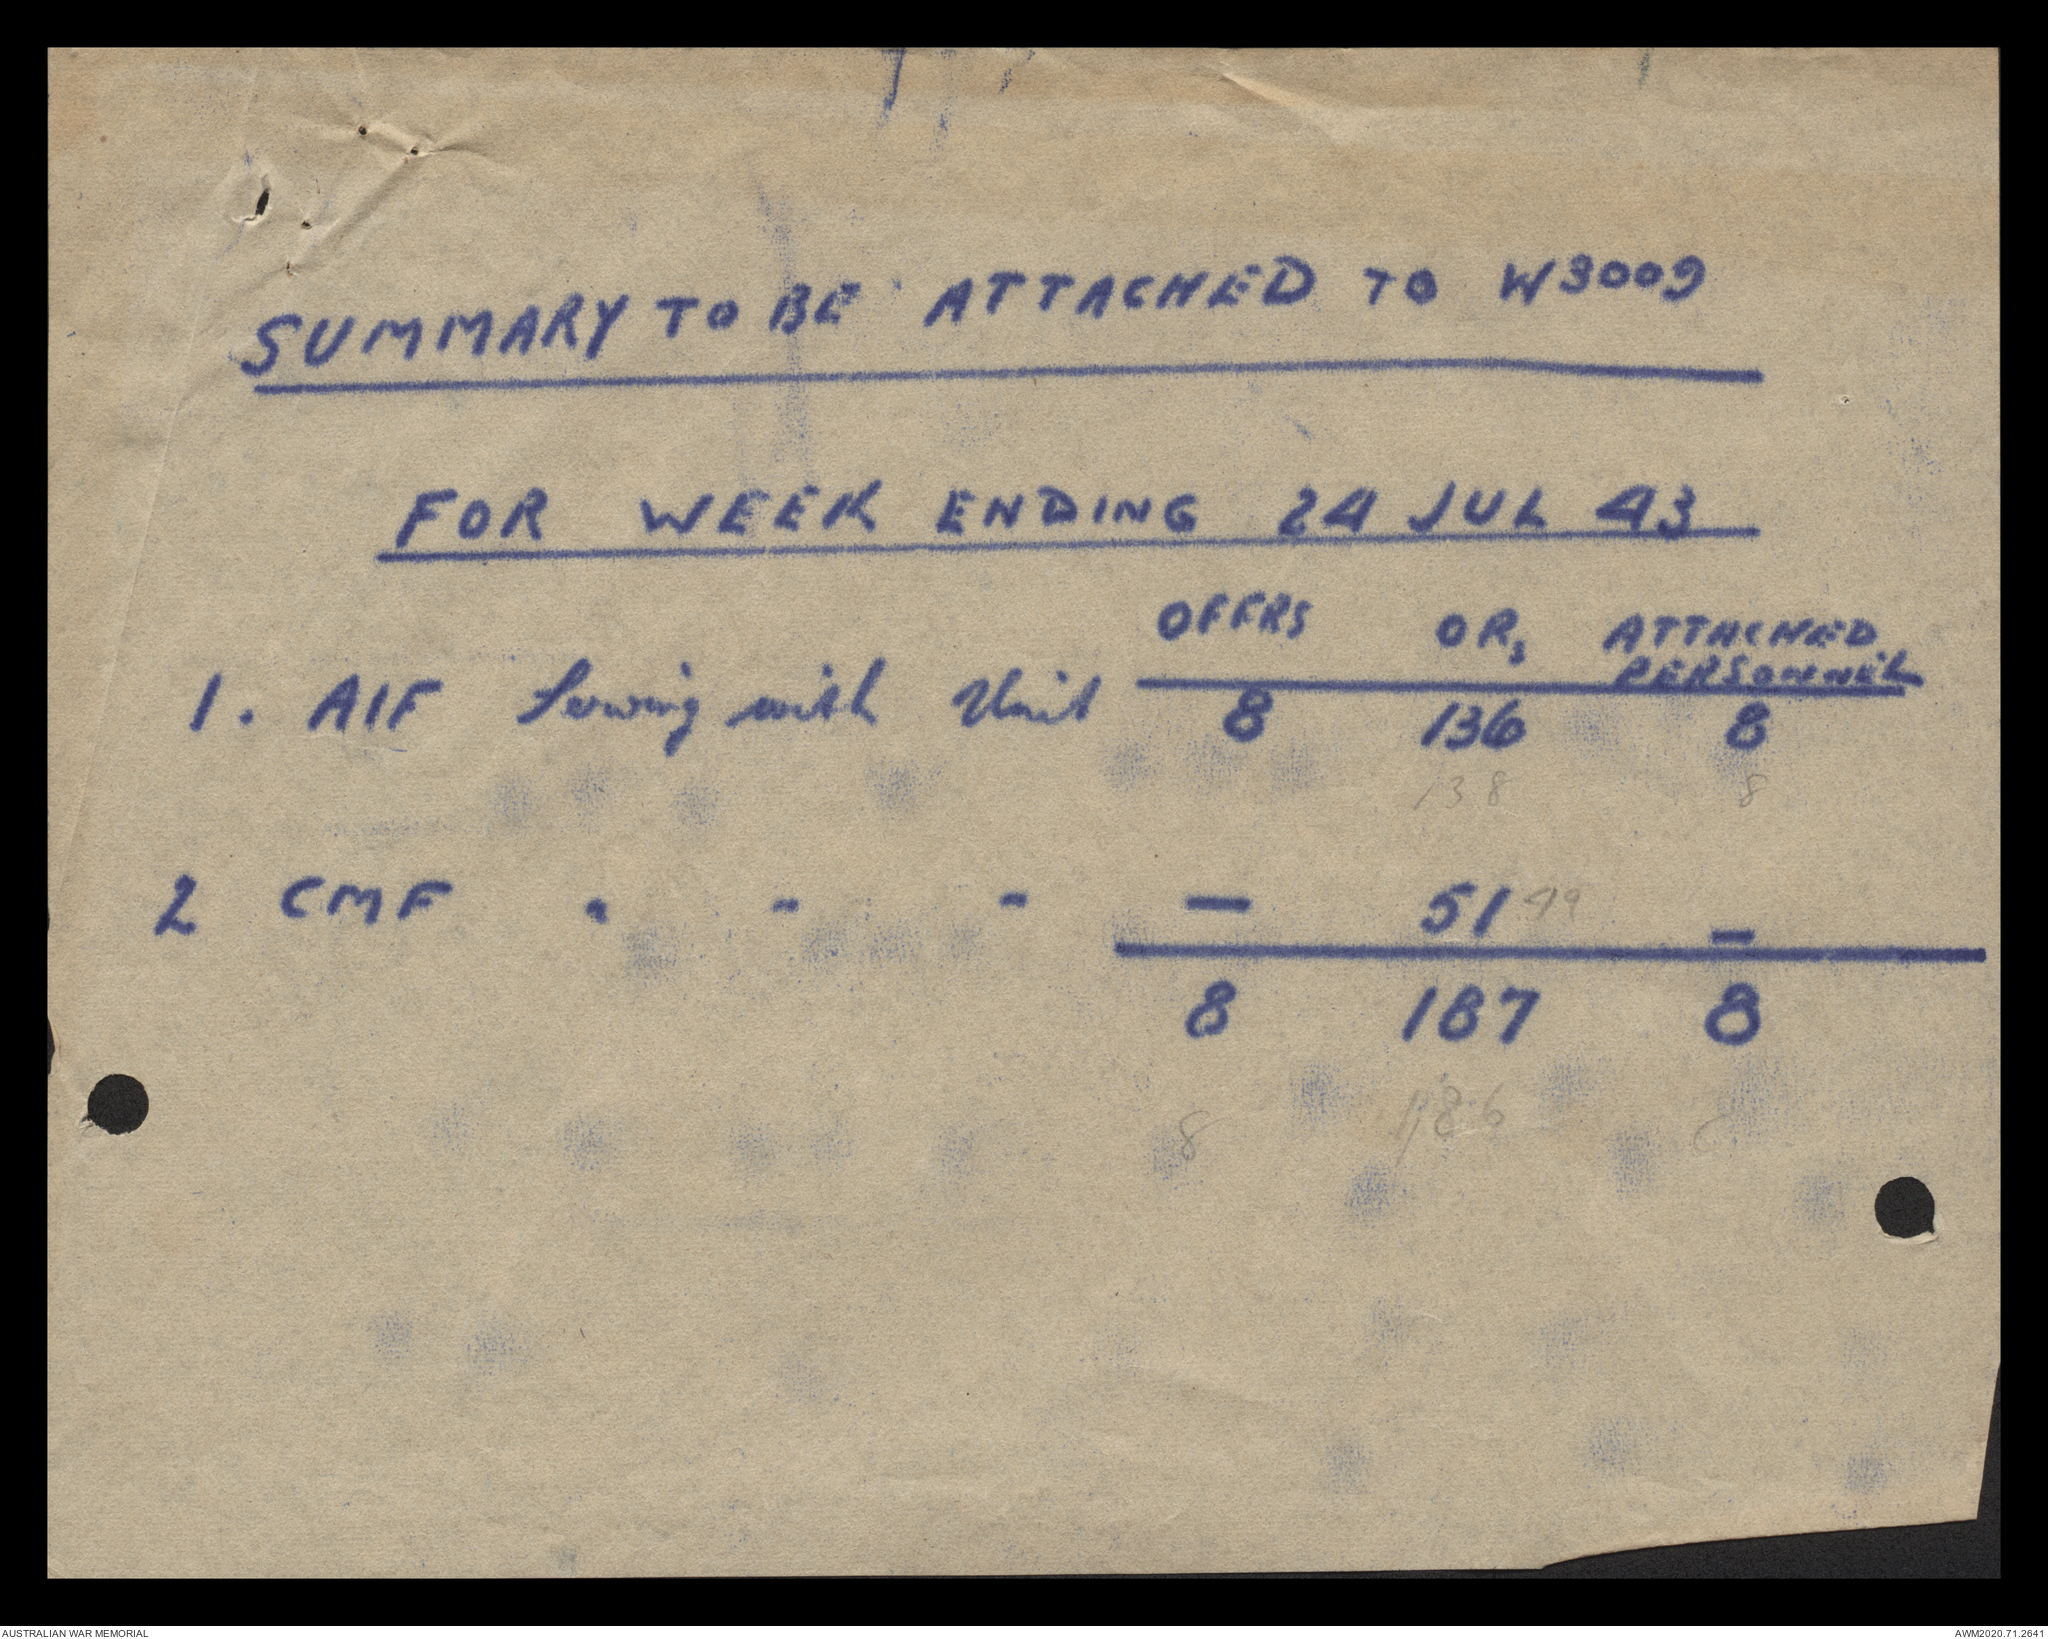 SUMMARY TO BE ATTACHED TO W3009
FOR WEEK ENDING 24 JUL 43
OFFRS ORs ATTACHED PERSONNEL
1. AIF Serving with Unit 8 136 8
138 8
2 CMF " " " — 51 49 —
8 187 8
8 186
AUSTRALIAN WAR MEMORIAL AWM2020.71.2641